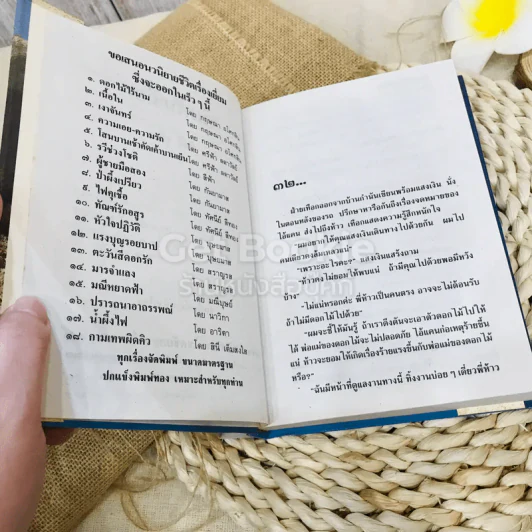 ขอเสนอนวนิยายชีวิตเรื่องเยี่ยม
ซึ่งจะออกในเร็ว ๆ นี้
๑. ดอกไม้ไร้นาม โดย กฤษณา อโศกสิน
๒. เนื้อใน โดย กฤษณา อโศกสิน
๓. เงาจันทร์ โดย กฤษณา อโศกสิน
๔. ความเอย-ความรัก โดย
๕. โสมบานเช้าคัดเค้าบานเย็น โดย
๖. รวีช่วงโชติ โดย
๗. ผู้ชายมือสอง โดย สีฟ้า
๘. ป่าผึ้งเปรียว โดย กันยามาส
๙. ไฟกุเชื้อ โดย กันยามาส
๑๐. ทัณฑ์รักอสูร โดย ทัศนีย์
๑๑. หัวใจปฏิวัติ โดย ทัศนีย์
๑๒. แรงบุญรอยบาป โดย บุษยมาส
๑๓. ตะวันสีดอกรัก โดย บุษยมาส
๑๔. มารจำแลง โดย
๑๕. มณีหยาดฟ้า โดย
๑๖. ปรารถนาอาถรรพณ์ โดย นาวิกา
๑๗. น้ำผึ้งไฟ โดย อาริตา
๑๘. กามเทพผิดคิว โดย สินี เต็มสงสัย
ทุกเรื่องจัดพิมพ์ ขนาดมาตรฐาน
ปกแข็งพิมพ์ทอง เหมาะสำหรับทุกท่าน
๓๒...
ฝ่ายเทือกออกจากบ้านกำนันเชียนพร้อมแสงเงิน นั่ง
ในตอนหลังของรถ ปรึกษาหารือกันถึงเรื่องจดหมายของ
ไอ้แดน ส่งไปถึงห้าว เทือกแสดงความรู้สึกหนักใจ
"ผมอยากให้คุณแสงเงินเดินทางไปด้วยกัน ผมไป
คนเดียวคงล้มเหลวแน่"
"เพราะอะไรคะ?" แสงเงินเสริ็จถาม
"ห้าวคงไม่ยอมให้พบแน่ ถ้ามีคุณไปด้วยพอมีหวัง
บ้าง"
"ไม่แน่หรอกค่ะ พี่ห้าวเป็นคนตรง อาจจะไม่ต้อนรับ
ถ้าไม่มีดอกไม้ไปด้วย"
"ผมจะชี้ให้มันรู้ ถ้าเราดึงดันจะเอาตัวดอกไม้ไปให้
ได้ พ่อแม่ของดอกไม้ จะไม่ปลอดภัย ไอ้แดนก่อเหตุร้ายขึ้น
แน่ ห้าวจะยอมให้เกิดเรื่องร้ายแรงขึ้นกับพ่อแม่ของดอกไม้
หรือ?"
"ฉันมีหน้าที่ดูแลงานทางนี้ ทิ้งงานบ่อย ๆ เดี๋ยวพี่ห้าว